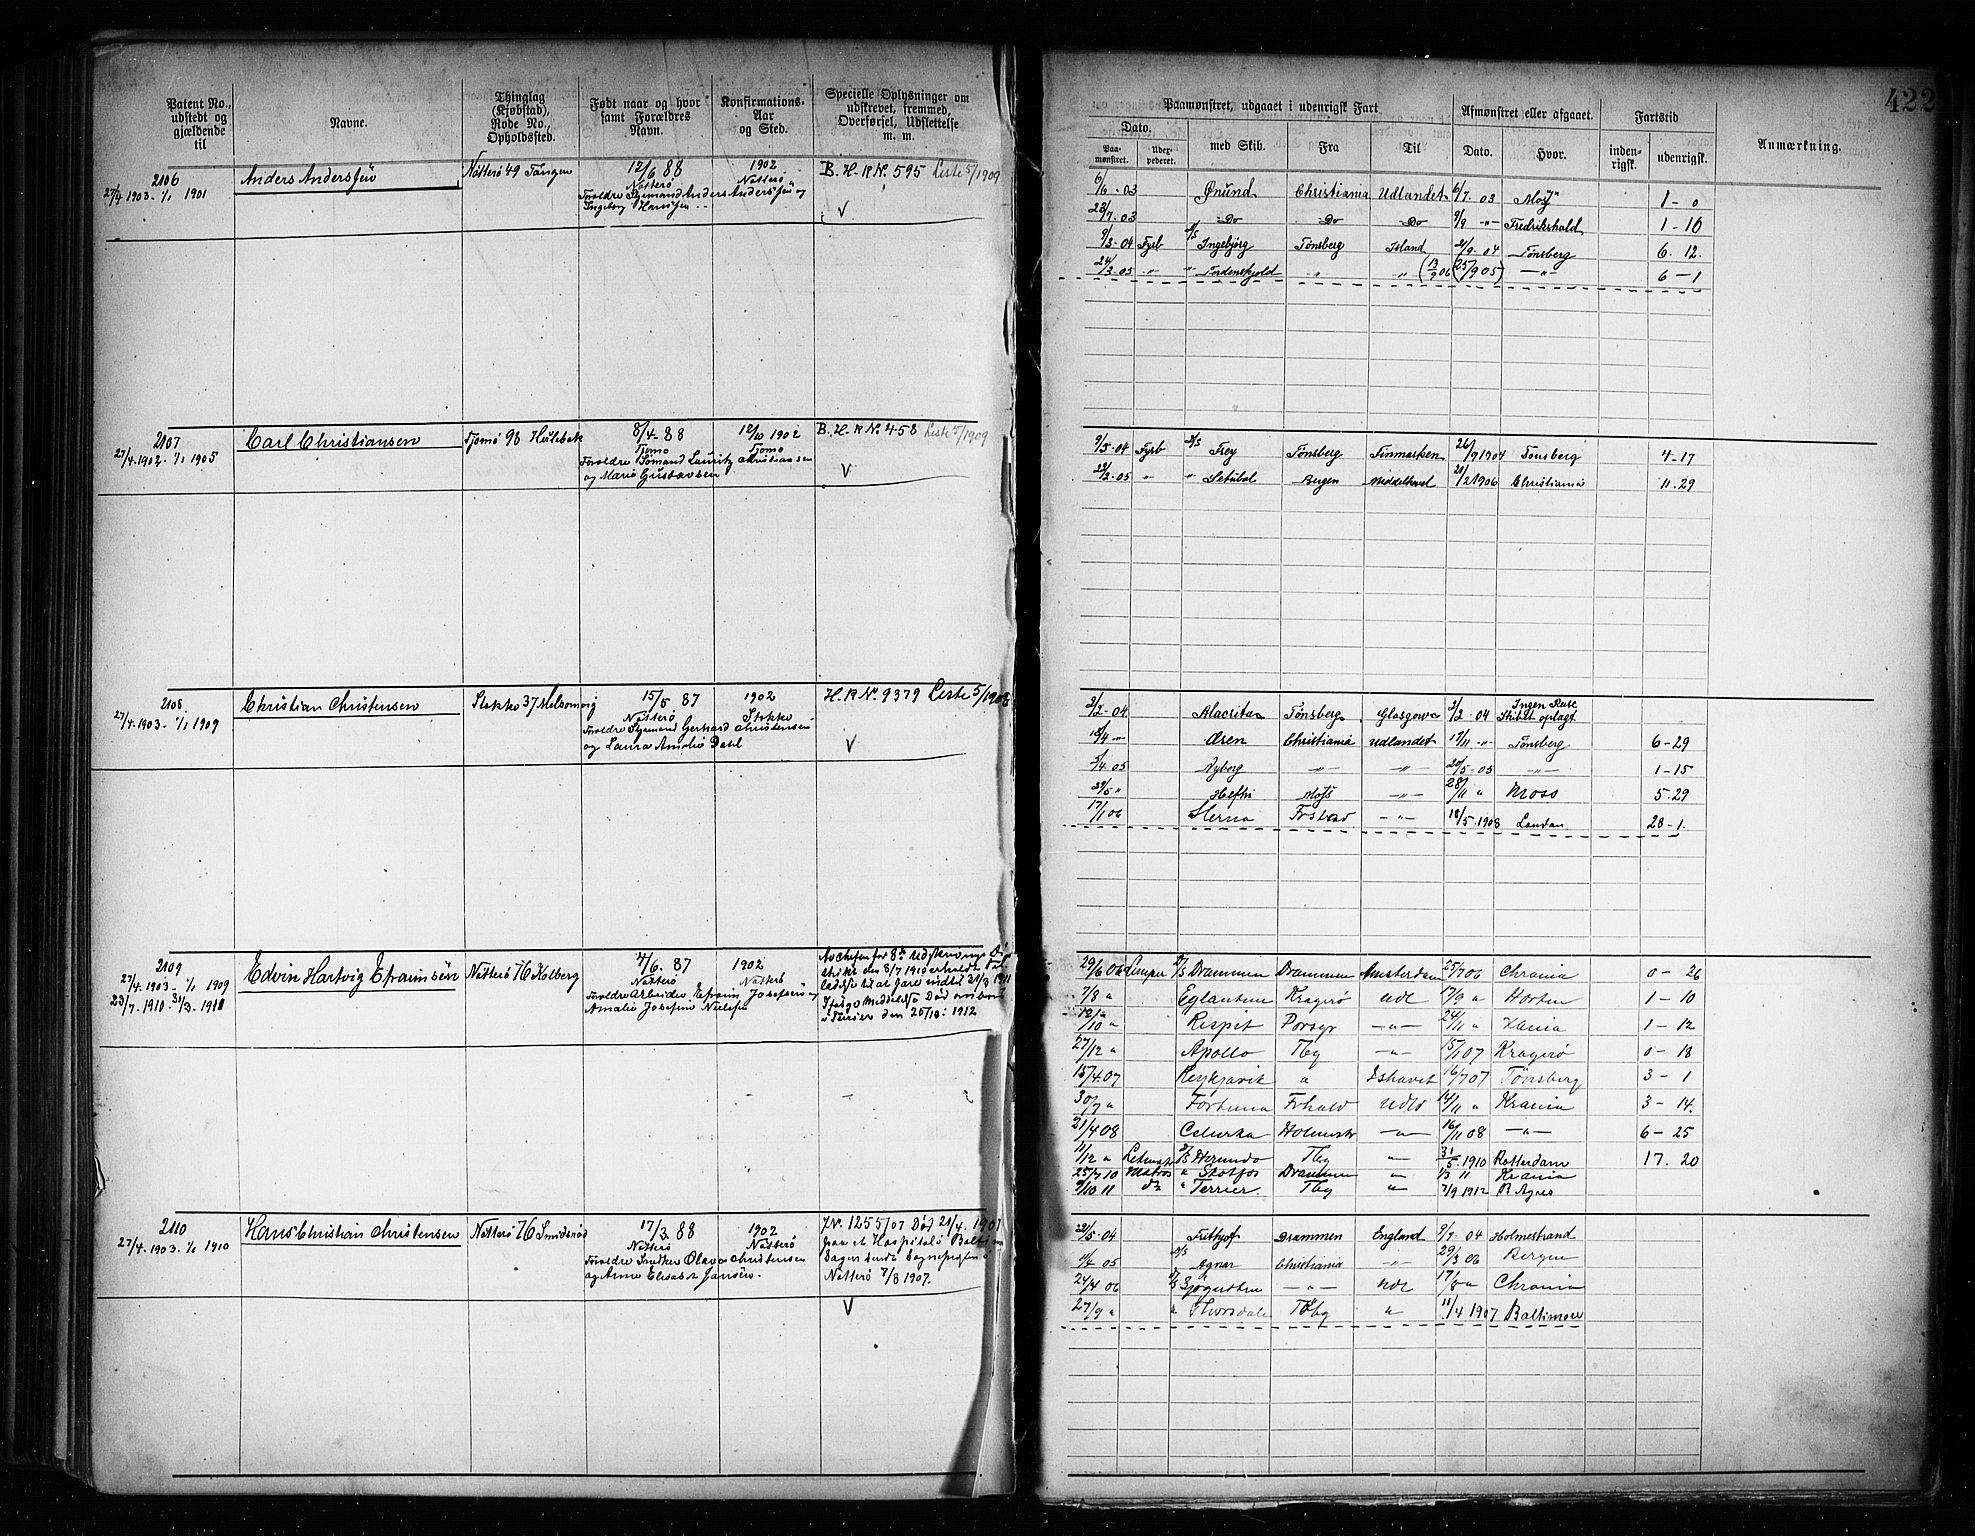 422
Patent No., udstedt og gjældende til
Navne.
Thinglag (Kjøbstad), Rode No., Opholdssted.
Født naar og hvor samt Forældres Navn.
Konfirmations- Aar og Sted.
Specielle Oplysninger om udskrevet, fremmed, Overførsel, Udslettelse m. m.
Paamønstret, udgaaet i udenrigsk Fart.
Afmønstret eller afgaaet.
Fartstid
Anmærkning.
Dato.
med Skib.
Fra
Til
Dato.
Hvor.
inden- rigsk.
udenrigsk.
Paa- mønstret.
2106
27/4 1903 - 1/1 1901
Anders Anderssen
Nøtterø 49 Tangen
12/6 88
Nøtterø
Foreldre Sjømand Anders Anderssen og
Ingeborg Hanssen
1902
Nøtterø
B. H. R No. 595 Liste 5/1909
V
6/6 - 03 Ønund Christiania Udlandet 6/7 03 Moss 1 - 0
23/7. 03 Do Do Do 9/9 " Fredrikshald 1 - 16
9/3 - 04 Fyrb D/S Ingebjørg Tønsberg Island 21/9 - 04 Tønsberg 6. 12.
24/3 05 " " Tordenskjold " " (13/9 06) (25/9 05) " 6 - 1
2107
27/4. 1902. 1/1 1905
Carl Christiansen
Tjømø 98 Hulebak
8/4 - 88
Tjømø
Foreldre Sømand Lauritz Christiansen
og Marie Gustavsen
12/10 1902
Tjømø
B. H. R No. 458 Liste 5/1909
V
9/5 - 04 Fyrb D/S Frey Tønsberg Finmarken 26/9 1904 Tønsberg 4 - 17
22/2. 05 " " Setubal Bergen Middelhavet 21/2 1906 Christiania 11. 29
2108
27/4. 1903. 1/1 1909
Christian Christensen
Stokke 37 Melsomvig
15/5 87
Nøtterø
Foreldre Sjømand Gerhard Christensen
og Laura Amalie Dahl
1902
Stokke
H. R No. 9379 Liste 5/1908
V
2/2 - 04 Alacritas Tønsberg Glasgow 2/2 - 04 Ingen Reise
Skibet oplagt
18/4 " Ören Christiania Udlandet 17/11 " Tønsberg 6 - 29
5/4. 05 Nyborg " " 20/5 - 05 " 1 - 15
29/5 " Hefhi Moss " 28/11 " Moss 5 - 29
17/1 06 Herna Frstad " 18/5. 1908 London 28 - 1.
2109
27/4. 1903 - 1/1 1909
23/7. 1910 31/3. 1911
Edvin Hartvig Efraimsen
Nøtterø 76 Kolberg
7/6. 87
Nøtterø
Foreldre Arbeider Efraim Josefsen og
Amalie Josefine Nielsen
1902
Nøtterø
Av chefen for 8de udskrivnings di-
strikt den 5/7 1910 erholdt til-
ladelse til at fare indtil 31/3 1911
Ifølge Meddelelse Død ombord
i Terrier den 25/10: 1912
29/6 06 Lemper D/S Drammen Drammen Amsterdam 25/7 06 Chrania 0 - 26
7/8 " Eglantine Kragerø Udl 17/9 " Horten 1 - 10
12/10 " Respit Porsgr " 24/11 " Xania 1 - 12
27/12 " Apollo Tbg " 15/1 07 Kragerø 0 - 18
15/4. 07 Reykjavik " Ishavet 16/7 07 Tønsberg 3 - 1
30/7 " Fortuna Frhald Udld 14/11 " Krania 3 - 14.
21/4 08 Celurka Holmestr " 16/11 08 " 6 - 25
11/12 " Letmatr D/S Herundo Tbg " 31/5. 1910 Rotterdam 17. 20
25/7 10 Matros " Skotfos Drammen " 1/3 11 Krania
9/10 11 do " Terrier. Tbg " 7/9 1912 B Ayres
2110
27/4. 1903. 1/1 1910
Hans Christian Christensen
Nøtterø 76 Smidsrød
17/3. 88
Nøtterø
Foreldre Snedker Olave Christensen
og Anne Elisabet Jansen.
1902
Nøtterø
J.N. 1255/07 Død 21/4. 1907
paa et Hospital i Baltimore
Nøtterø 7/8 1907.
V
22/5 - 04 Frithjof Drammen England 9/9. 04 Holmestrand
11/4 05 D/S Agnar Christiania " 29/3 06 Bergen
24/4 06 D/S Sjøgutten " Udl 17/8 " Chrania
27/9 " " Thorsdal Tbg " 11/4 1907 Baltimore